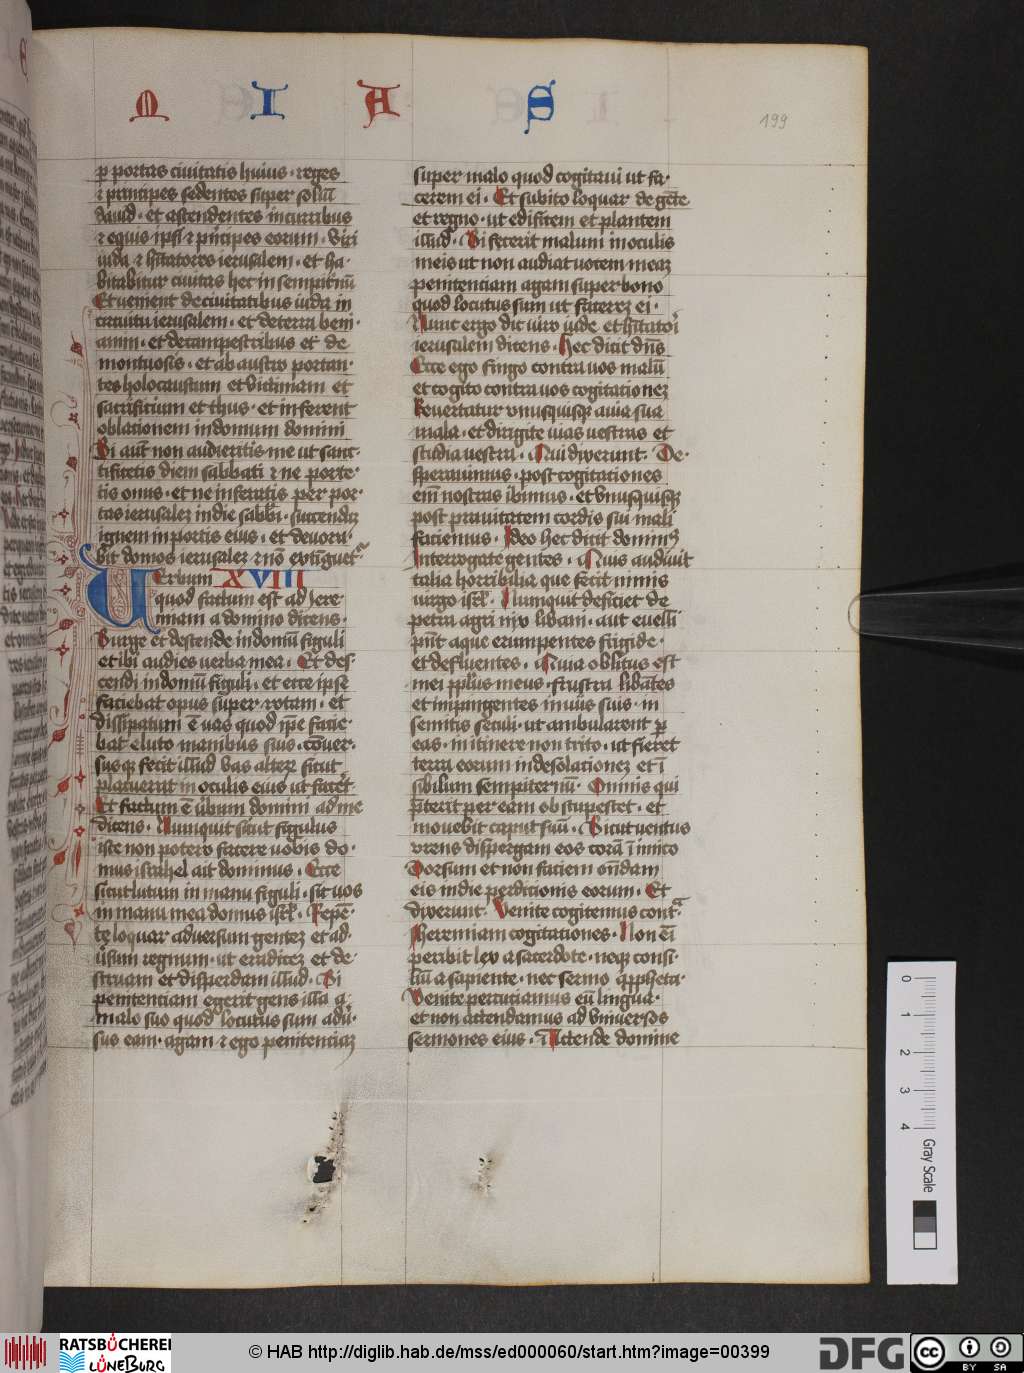 M I A S
199
p portas ciuitatis huius · reges
⁊ principes sedentes super soliū
dauid · et ascendentes in curribus
⁊ equis ipsi ⁊ principes eorum · Viri
iuda ⁊ hītatores ierusalem · et ha·
bitabitur ciuitas hec in sempitnū
Et uenient de ciuitatibus iuda in
circuitu ierusalem · et de terra beni·
amin · et de campestribus et de
montuosis · et ab austro portan·
tes holocaustum et victimam et
sacrificium et thus · et inferent
oblationem in domum domini
Si aut non audieritis me ut sanc·
tificetis diem sabbati ⁊ ne porte·
tis onus · et ne inferatis per por·
tas ierusalem in die sabbi · succendam
ignem in portis eius · et deuora·
bit domos ierusalem ⁊ nō extīguetr
Verbum XVIII
quod factum est ad here·
miam a domino dicens ·
Surge et descende in domū figuli
et ibi audies uerba mea · Et des·
cendi in domū figuli · et ecce ipse
faciebat opus super rotam · et
dissipatum ē uas quod ipse facie·
bat e luto manibus suis · cōuer·
susq fecit illud vas alterum sicut
placuerat in oculis eius ut faceret
Et factum ē ubum domini ad me
dicens · Nunquit sicut figulus
iste non potero facere uobis do·
mus israhel ait dominus · Ecce
sicut lutum in manu figuli · sic uos
in manu mea domus isrl · Repen·
te loquar aduersum gentem et ad·
usum regnum · ut eradicem et de·
struam et disperdam illud · Si
penitenciam egerit gens illa a
malo suo quod locutus sum adu·
sus eam · agam ⁊ ego penitenciam
super malo quod cogitaui ut fa·
cerem ei · Et subito loquar de gēte
et regno · ut edificem et plantem
illud · Si fecerit malum in oculis
meis ut non audiat uocem meam
penitenciam agam super bono
quod locutus sum ut facerem ei ·
Nunc ergo dic uiro iude et hītatori
ierusalem dicens · Hec dicit dns
Ecce ego fingo contra uos malū
et cogito contra uos cogitationem
Reuertatur vnusquisq a uia sua
mala · et dirigite uias uestras et
studia uestra · Qui dixerunt · De·
sperauimus · post cogitationes
em nostras ibimus · et vnusquisq
post prauitatem cordis sui mali
faciemus · Ideo hec dicit dominus
Interrogate gentes · Quis audiuit
talia horribilia que fecit nimis
uirgo isrl · Nunquit deficiet de
petra agri nix libani · aut euelli
pnt aque erumpentes frigide ·
et defluentes · Quia oblitus est
mei pplus meus · frustra libātes
et impingentes in uiis suis · in
semitis seculi · ut ambularent p
eas · in itinere non trito · ut fieret
terra eorum in desolationem et ī
sibilum sempiternū · Omnis qui
pterit per eam obstupescet · et
mouebit caput suū · Sicut uentus
vrens dispergam eos corā inimico
Dorsum et non faciem ondam
eis in die perditionis eorum · Et
dixerunt · Venite cogitemus contra
Iheremiam cogitationes · Non em
peribit lex a sacerdote · neq consi·
liū a sapiente · nec sermo a ppheta ·
Venite percutiamus eū lingua ·
et non attendamus ad vniuersos
sermones eius · Attende domine
0 1 2 3 4
Gray Scale
RATSBÜCHEREI
LÜNEBURG
© HAB http://diglib.hab.de/mss/ed000060/start.htm?image=00399
DFG
cc BY SA